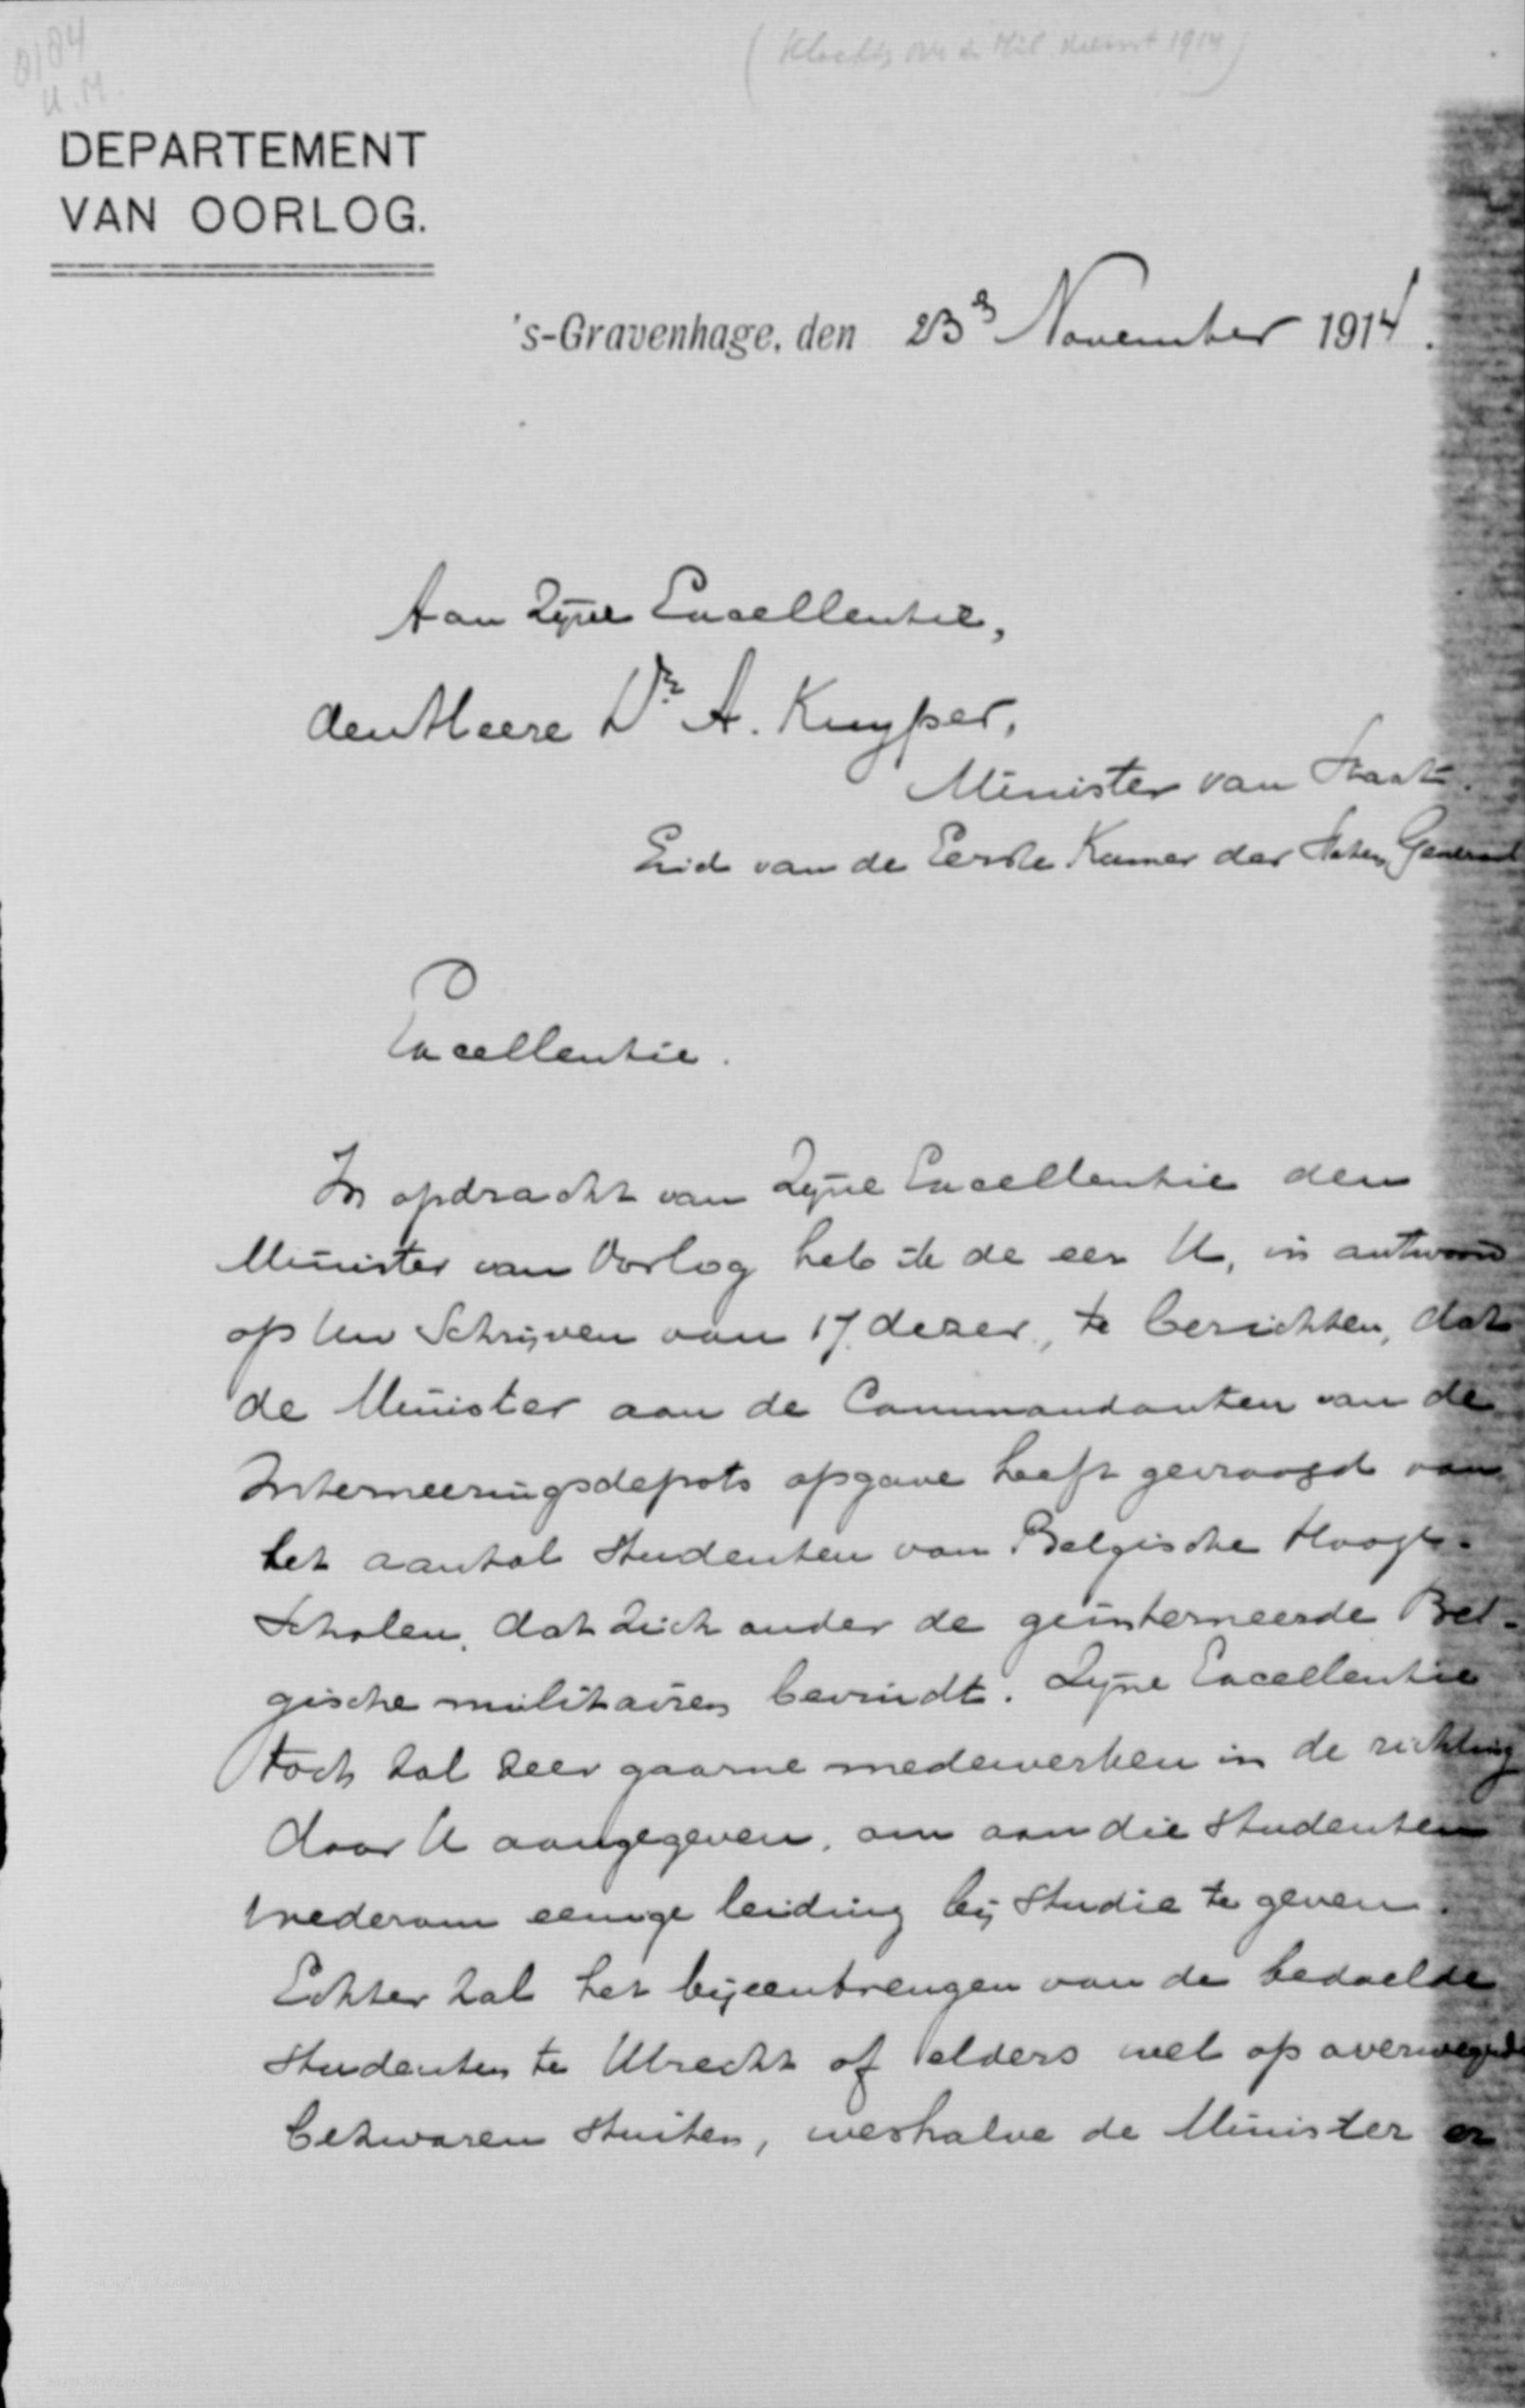 8184
U.M.
DEPARTEMENT
VAN OORLOG.
's-Gravenhage, den 23 November 1914.
Aan Zijne Excellentie,
den Heere Dr. A. Kuyper,
Minister van Staat.
Lid van de Eerste Kamer der Staten Generaal
Excellentie.
In opdracht van Zijne Excellentie den
Minister van Oorlog heb ik de eer U, in antwoord
op Uw Schrijven van 17 dezer, te berichten, dat
de Minister aan de Commandanten van de
Interneeringsdepots opgave heeft gevraagd van
het aantal Studenten van Belgische Hooge-
Scholen, dat zich onder de geïnterneerde Bel-
gische militairen bevindt. Zijne Excellentie
toch zal zeer gaarne medewerken in de richting
door U aangegeven, om aan die Studenten
wederom eenige leiding bij Studie te geven.
Echter zal het bijeenbrengen van de bedoelde
Studenten te Utrecht of elders wel op overwegende
bezwaren stuiten, weshalve de Minister er